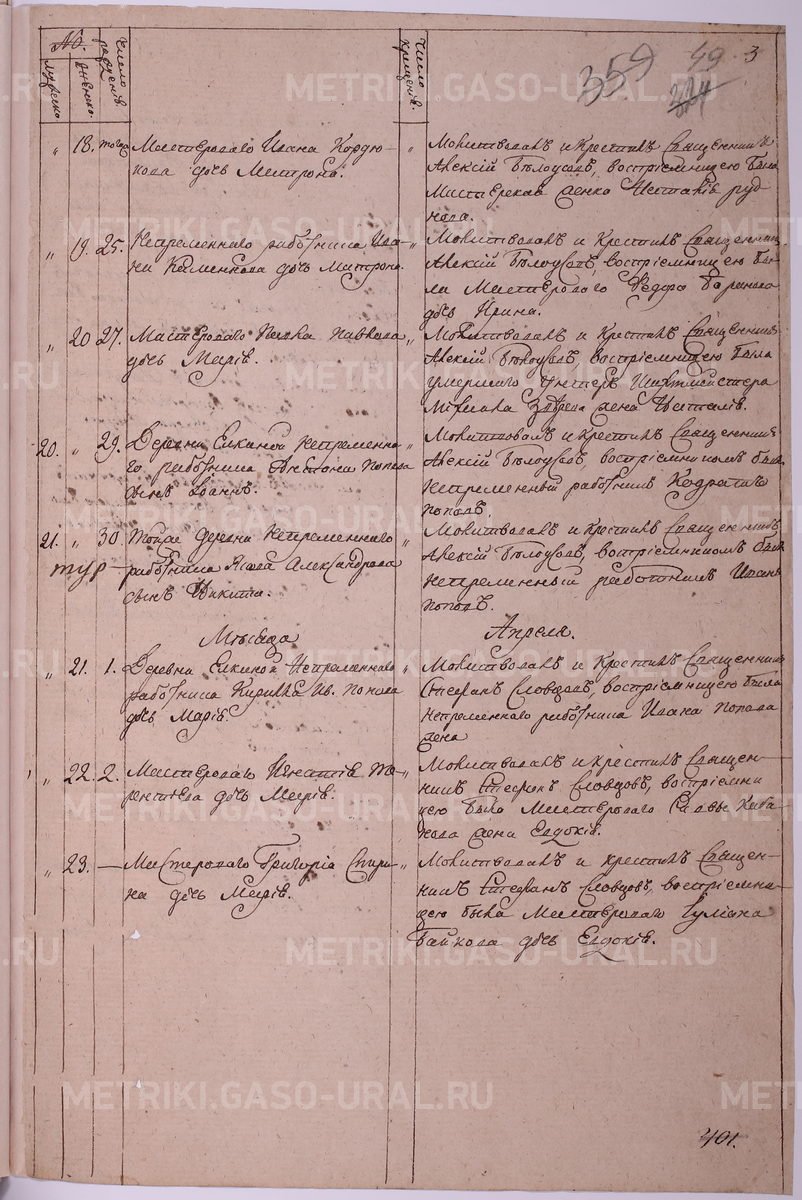 359 49. 3
No.
мужеско.
женско.
Число рожденiя.
Число крещенiя.
" 18. того Мастероваго Ивана Кордю-
кова дочь Матрона.
" Молитвовалъ и Крестилъ Священникъ
Алексiй Бѣлоусовъ, воспрiемницею была
Мастерская женка Наталiя
" 19. 25. Непременнаго работника Ива-
на Каменскова дочь Матрона.
" Молитвовалъ и Крестилъ Священникъ
Алексiй Бѣлоусовъ, воспрiемницею бы-
ла Мастероваго Ѳедора
дочь Ирина.
" 20 27. Мастероваго Павкова
дочь Марiя.
" Молитвовалъ и Крестилъ Священникъ
Алексiй Бѣлоусовъ, воспрiемницею была
умершаго Унтеръ Шихтмейстера
жена Наталiя.
20. " 29. Деревни Елкиной Непременна-
го работника Антона Попова
сынъ Iоаннъ.
" Молитвовалъ и Крестилъ Священникъ
Алексiй Бѣлоусовъ, воспрiемникомъ былъ
Непременный работникъ Кодратъ
Поповъ.
21. " 30. Тойже деревни Непременнаго
работника Якова Александрова
сынъ Никита.
" Молитвовалъ и Крестилъ Священникъ
Алексiй Бѣлоусовъ, воспрiемникомъ былъ
Непременный работникъ Иванъ
Поповъ.
Мѣсяца Апреля.
" 21. 1. Деревни Елкиной Непременнаго
работника Кирила Ив. Попова
дочь Марiя.
" Молитвовалъ и Крестилъ Священникъ
Стефанъ Словцовъ, воспрiемницею была
Непременнаго работника Ивана Попова
жена
" 22. 2. Мастероваго Игнатiя Те-
рентьева дочь Марiя.
" Молитвовалъ и Крестилъ Священ-
никъ Стефанъ Словцовъ, воспрiемни-
цею была Мастероваго Савы
жена Евдокiя.
" 23. — Мастероваго Григорiя Спири-
на дочь Марiя.
" Молитвовалъ и крестилъ Священ-
никъ Стефанъ Словцовъ, воспрiемни-
цею была Мастероваго Iулiана
Байкова дочь Евдокiя.
401.
METRIKI.GASO-URAL.RU